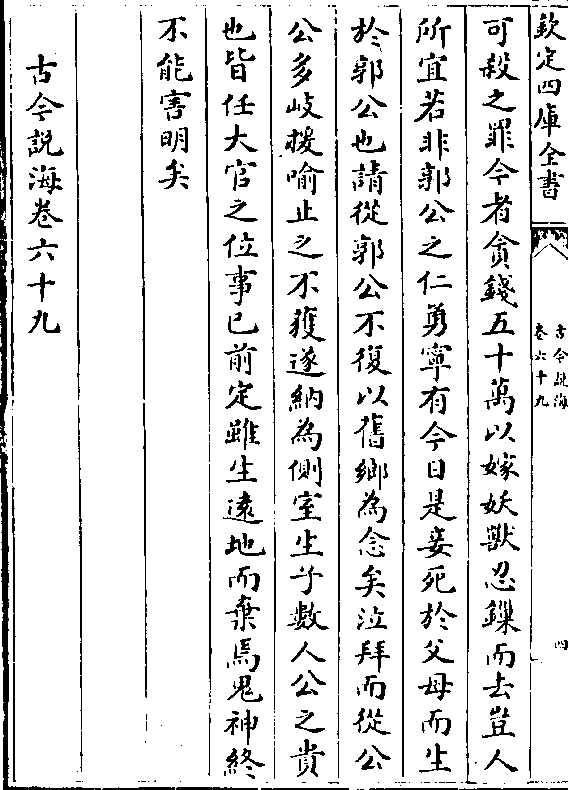 欽定四庫全書
古今說海
卷六十九
四
可殺之罪今者貪錢五十萬以嫁妖獸忍鏁而去豈人
所宜若非郭公之仁勇寧有今日是妾死於父母而生
於郭公也請從郭公不復以舊鄉為念矣泣拜而從公
公多岐援喻止之不獲遂納為側室生子數人公之貴
也皆任大官之位事已前定雖生遠地而棄焉鬼神終
不能害明矣
古今說海卷六十九